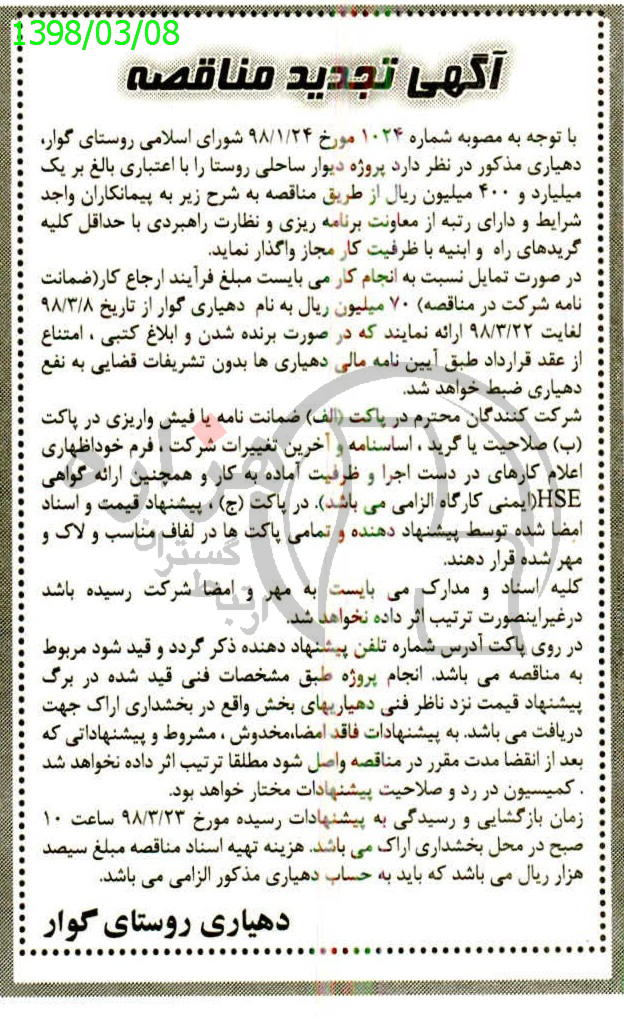 1398/03/08
آگهی تجدید مناقصه
با توجه به مصوبه شماره ۱۰۲۴ مورخ ۹۸/۱/۲۴ شورای اسلامی روستای گوار،
دهیاری مذکور در نظر دارد پروژه دیوار ساحلی روستا را با اعتباری بالغ بر یک
میلیارد و ۴۰۰ میلیون ریال از طریق مناقصه به شرح زیر به پیمانکاران واجد
شرایط و دارای رتبه از معاونت برنامه ریزی و نظارت راهبردی با حداقل کلیه
گریدهای راه و ابنیه با ظرفیت کار مجاز واگذار نماید.
در صورت تمایل نسبت به انجام کار می بایست مبلغ فرآیند ارجاع کار(ضمانت
نامه شرکت در مناقصه) ۷۰ میلیون ریال به نام دهیاری گوار از تاریخ ۹۸/۳/۸
لغایت ۹۸/۳/۲۲ ارائه نمایند که در صورت برنده شدن و ابلاغ کتبی ، امتناع
از عقد قرارداد طبق آیین نامه مالی دهیاری ها بدون تشریفات قضایی به نفع
دهیاری ضبط خواهد شد.
شرکت کنندگان محترم در پاکت (الف) ضمانت نامه یا فیش واریزی در پاکت
(ب) صلاحیت یا گرید ، اساسنامه و آخرین تغییرات شرکت ، فرم خوداظهاری
اعلام کارهای در دست اجرا و ظرفیت آماده به کار و همچنین ارائه گواهی
HSE(ایمنی کارگاه الزامی می باشد). در پاکت (ج) ، پیشنهاد قیمت و اسناد
امضا شده توسط پیشنهاد دهنده و تمامی پاکت ها در لفاف مناسب و لاک و
مهر شده قرار دهند.
کلیه اسناد و مدارک می بایست به مهر و امضا شرکت رسیده باشد
درغیراینصورت ترتیب اثر داده نخواهد شد.
در روی پاکت آدرس شماره تلفن پیشنهاد دهنده ذکر گردد و قید شود مربوط
به مناقصه می باشد. انجام پروژه طبق مشخصات فنی قید شده در برگ
پیشنهاد قیمت نزد ناظر فنی دهیاریهای بخش واقع در بخشداری اراک جهت
دریافت می باشد. به پیشنهادات فاقد امضا،مخدوش ، مشروط و پیشنهاداتی که
بعد از انقضا مدت مقرر در مناقصه واصل شود مطلقا ترتیب اثر داده نخواهد شد
. کمیسیون در رد و صلاحیت پیشنهادات مختار خواهد بود.
زمان بازگشایی و رسیدگی به پیشنهادات رسیده مورخ ۹۸/۳/۲۳ ساعت ۱۰
صبح در محل بخشداری اراک می باشد. هزینه تهیه اسناد مناقصه مبلغ سیصد
هزار ریال می باشد که باید به حساب دهیاری مذکور الزامی می باشد.
دهیاری روستای گوار
هزاره
گستران
ارتباط